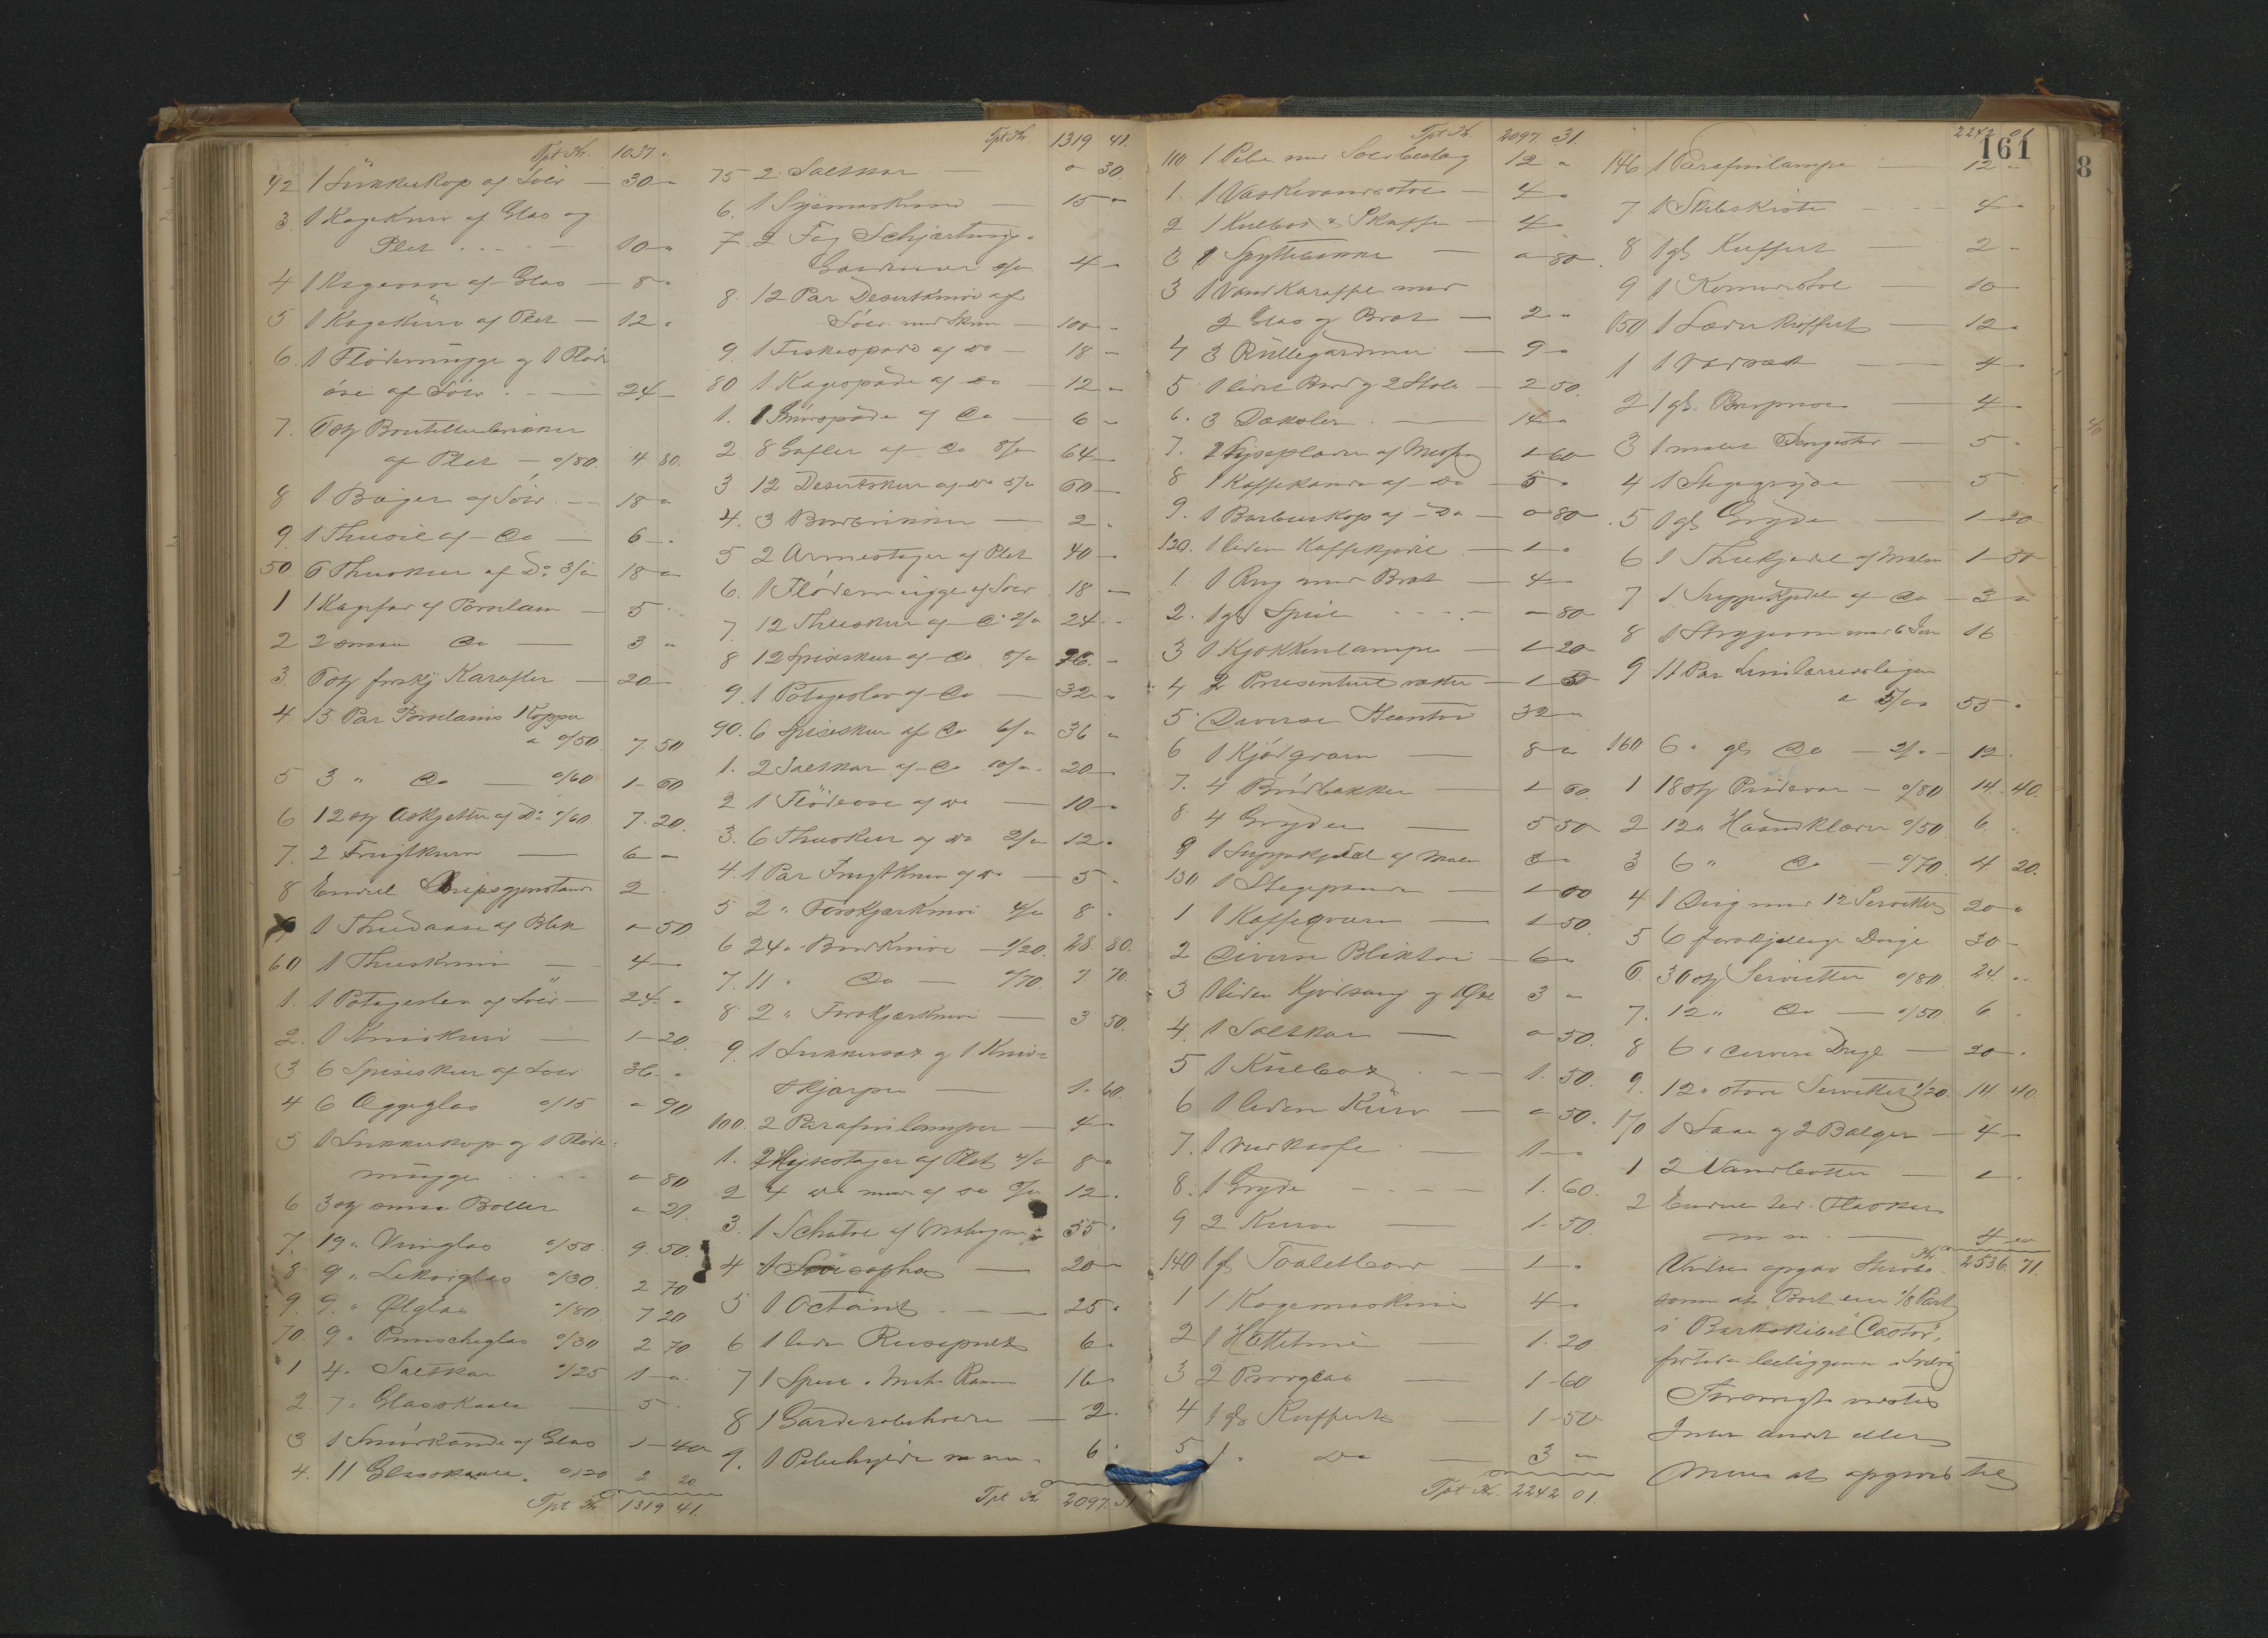 Tpt Kr. 1037 "
42 1 Sukkerkop af Sölv — 30 "
3. 1 Kagekurv af Glas og
Plet . . . 10 "
4 1 Kagevase af Glas — 8 "
5 1 Kagekurv af Plet — 12 "
6. 1 Flödemugge og 1 Flöde
öse af Sölv . — 24 —
7. 6 st Bouteillebrikker
af Plet — "/80. 4 80.
8 1 Bæger af Sölv — 18 "
9. 1 Thesie af Do — 6 "
50 6 Theskeer af Do 3/" 18 "
1 1 Kagefad af Porselæn — 5 "
2 2 smaa Do — 3 "
3. 6 st forskj Karafler — 20 —
4. 15 Par Porselæns Kopper
a "/50 7 50
5 3 " Do — "/60 1 80
6 12 st Askjetter af Do "/60 7. 20.
7. 2 Frugtkurve — 6 —
8 Endeel Nipsgjenstande 2
9 1 Theedaase af Blik " 50
60 1 Theskrin — 4 —
1. 1 Potageslev af Sölv — 24. "
2. 1 Knivkurv — 1 20.
3 6 Spiseskeer af Sölv 36. "
4 6 Æggeglas "/15 " 90
5 1 Sukkerkop og 1 Flöde-
mugge . . . " 80
6 3 st smaa Boller " 21.
7. 19 " Vinglas "/50. 9. 50.
8 9 " Likörglas "/30. 2 70
9. 9. " Ölglas "/80 7 20
70. 9 " Punscheglas "/30 2 70
1 4 " Saltkar "/25 1 "
2. 7 " Glasskaale — 5 "
3 1 Smörkande af Glas 1 40
4. 11 Glasskaale. "/20 2 20
Tpt Kr. 1319 41.
Tpt Kr. 1319 41.
75 2 Saltkar — " 30.
6. 1 Symaskine — 15 "
7. 2 Fag Schjærtings-
Gardiner 2/" 4 "
8. 12 Par Desertknive af
Sölv med Skrin — 100 "
9. 1 Fiskespade af do — 18 —
80 1 Kagespade af do — 12 "
1. 1 Smörspade af Do — 6 "
2 8 Gafler af Do 8/" 64 —
3 12 Desertskeer af do 5/" 60 —
4. 3 Bordbrikker — 2 "
5 2 Armestager af Plet 40 —
6. 1 Flödemugge af Sölv 18 —
7. 12 Theskeer af Do 2/" 24. "
8 12 Spiseskeer af Do 8/" 96. —
9. 1 Potageslev af Do — 32 "
90. 6 Spiseskeer af Do 6/" 36 "
1. 2 Saltkar af Do 10/" 20 —
2 1 Flödeöse af do — 10 "
3. 6 Theskeer af do 2/" 12. "
4. 1 Par Frugtknive af do — 5 "
5 2 " Forskjærknive 4/" 8 "
6 24 " Bordknive — 1/20. 28. 80.
7. 11 " Do — "/70. 7 70
8 2 " Forskjærknive — 3 50.
9. 1 Sukkersax og 1 Kniv-
skjærper — 1. 60.
100. 2 Parafinlamper — 4 —
1. 2 Lysestager af Plet 4/" 8 "
2 4 do mindre af do 3/" 12. "
3. 1 Schatol af Mahogni 55 "
4 1 Sövesopha — 20 —
5 1 Octant . — 25. "
6 1 liden Rusepult 6 "
7 1 Speil i Mah. Ramme 16 "
8 1 Garderobeholder — 2. "
9. 1 Pibehylde m m — 6 "
Tpt Kr 2097. 31
Tpt Kr. 2097. 31.
110 1 Pibe med Sölvbeslag 12 "
1. 1 Vaskevandsstol — 4 "
2 1 Kulbox & Skuffe — 4 "
3 1 Spyttebakke — " 80.
3 1 Vandkaraffel med
2 Glas og Bret — 2 "
4 3 Rullegardiner — 9 "
5. 1 lidet Bord og 2 Stole — 2 50.
6. 3 Dækoler . — 14 "
7. 2 Lyseplader af Messing 1 60
8 1 Kaffekande af do — 5 "
9. 1 Barbeerkop af Do — " 80
120. 1 liden Kaffekjedel — 1 "
1. 1 Ryg med Bret — 4 "
2. 1 gl Speil . . . — " 80
3 1 Kjökkenlampe — 1 20
4 2 Presenteerbrætter — 1 50
5. Diverse Steentöi 32 "
6 1 Kjödqværn — 8 "
7. 4 Brödbakker — 1 60.
8. 4 Gryder — 5 50
9 1 Suppekjedel af Malm 3 "
130 1 Stegepande — 1 60
1 1 Kaffeqværn — 1 50.
2 Diverse Bliktöi — 6 "
3 1 liden Kjödsaug og 1 Öxe 3 "
4. 1 Saltkar — " 50.
5 1 Kulbox . . — 1. 50.
6 1 liden Kurv — " 50.
7. 1 Vedkasse . — 1 "
8. 1 Gryde — 1. 60.
9 2 Kurve — 1. 50.
140 1 gl Toaletbord — 1 "
1 1 Kogemaskine 4 "
2 1 Hættetine — 1. 20
3 2 Bordglas — 1 60
4 1 gl Kuffert — 1 50
5 1 " do — 3 "
Tpt Kr. 2242 01.
2242 01
161
8
146 1 Parafinlampe — 12 "
7 1 Skibskiste . . . 4 "
8 1 gl Kuffert — 2 "
9 1 Komodestol — 10 —
150 1 Læderkuffert — 12 "
1 1 Vadsæk — 4 "
2 1 gl. Bismer — 4 "
3 1 malet Sengested — 5 "
4 1 Stegegryde — 5
5 1 gl Gryde — 1 20
6 1 Theekjedel af Malm 1 50
7 1 Suppekjedel af Do — 3 "
8 1 Strygeovn med 6 Jern 16
9 11 Par Linnlærredslagen
a 5/" 55 "
160 6 " gl Do — 2/" — 12.
1 18 st Pudevar — "/80 14. 40.
2 12 " Haandklæder "/50 6. "
3 6 " Do — "/70. 4 20.
4 1 Dug med 12 Servietter 20 "
5 6 forskjellige Duge 30 —
6. 30 st Servietter "/80 24 "
7. 12 " Do — "/50 6 "
8 6 " diverse Duge — 20 "
9. 12 " store Servietter 1/20. 14 40.
170 1 Saae og 2 Balger — 4 —
1 2 Vandbötter — 1 "
2 Endeel led. Flasker
m m. — 4 "
Kr. 2536. 71.
Viden opgav Sterbo
som at Boet eier 1/8 Part
i Barkskibet "Castor",
fortiden beliggende i
Forövrigt vidstes
Intet andet eller
Mere at opgives til